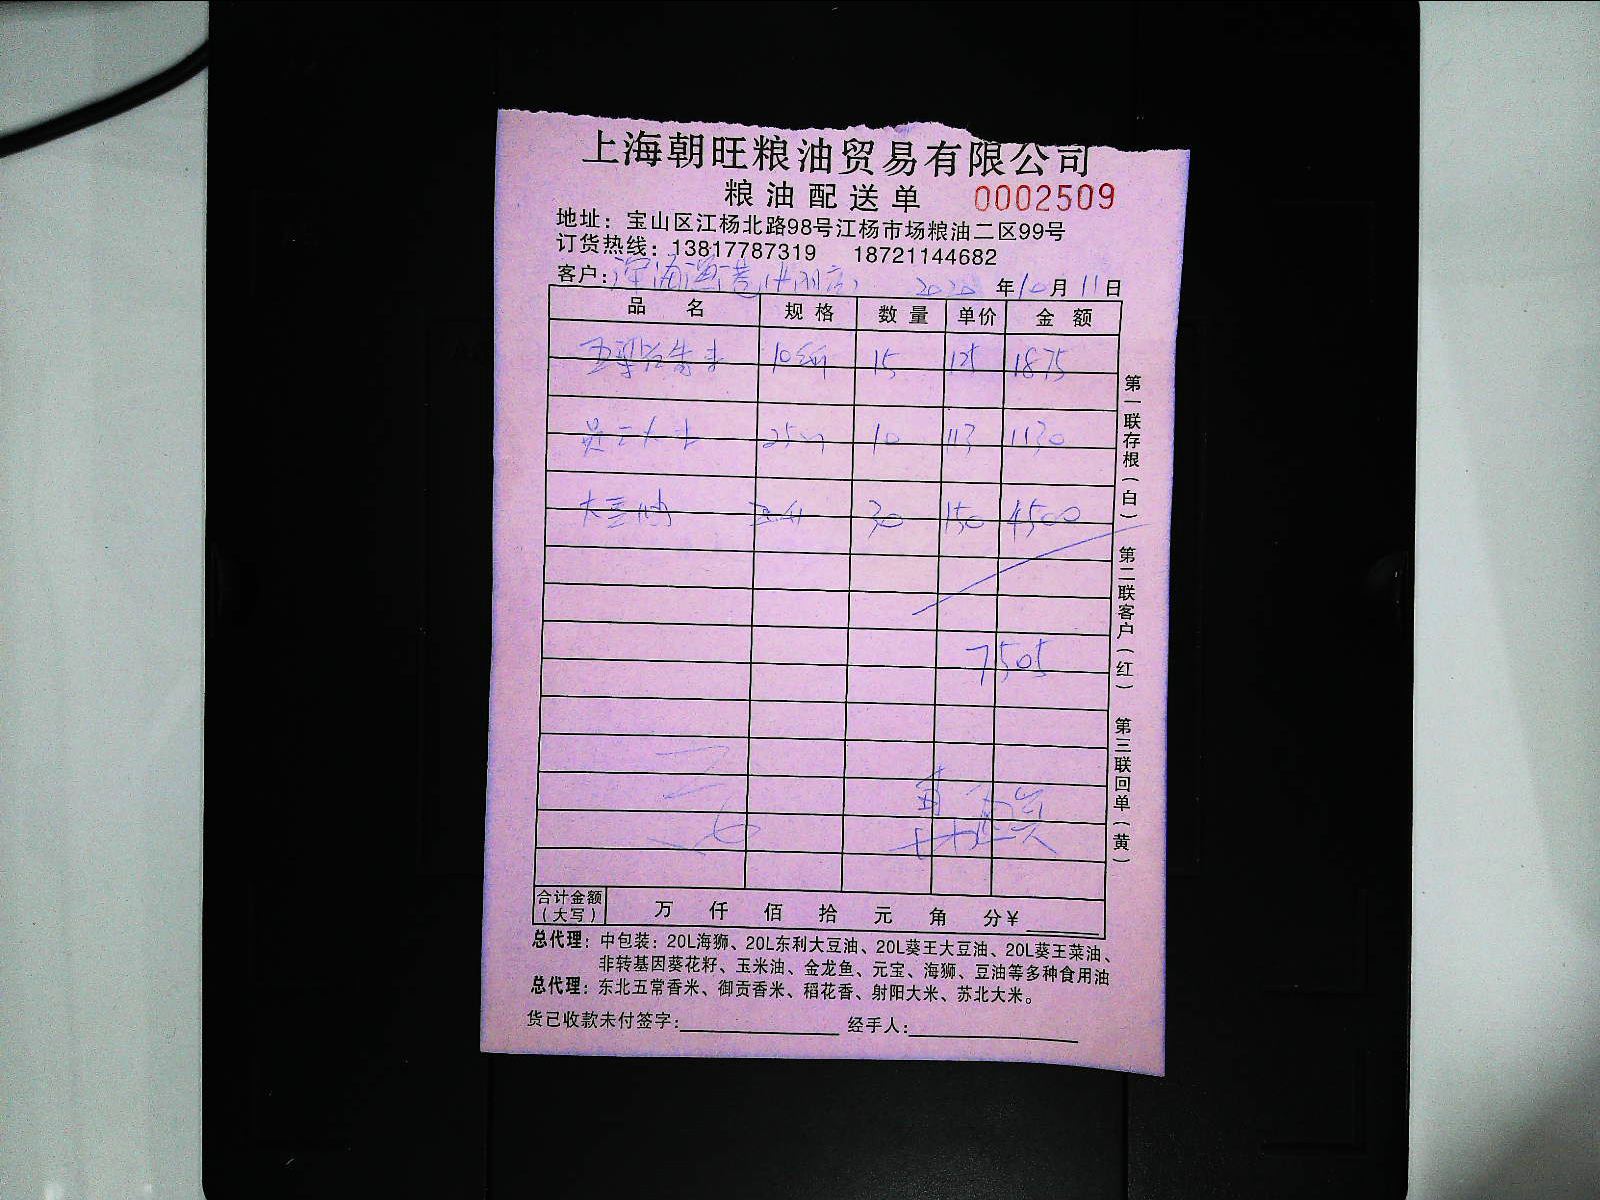 上海朝旺粮油贸易有限公司
粮油配送单 0002509
地址：宝山区江杨北路98号江杨市场粮油二区99号
订货热线：13817787319 18721144682
客户： 2020年10月11日
品名 规格 数量 单价 金额
15 125 1875
大米 25 10 113 1130
大豆油 30 150 4500
7505
合计金额（大写） 万 仟 佰 拾 元 角 分￥
总代理：中包装：20L海狮、20L东利大豆油、20L葵王大豆油、20L葵王菜油、
非转基因葵花籽、玉米油、金龙鱼、元宝、海狮、豆油等多种食用油
总代理：东北五常香米、御贡香米、稻花香、射阳大米、苏北大米。
货已收款未付签字： 经手人：
第一联存根（白） 第二联客户（红） 第三联回单（黄）